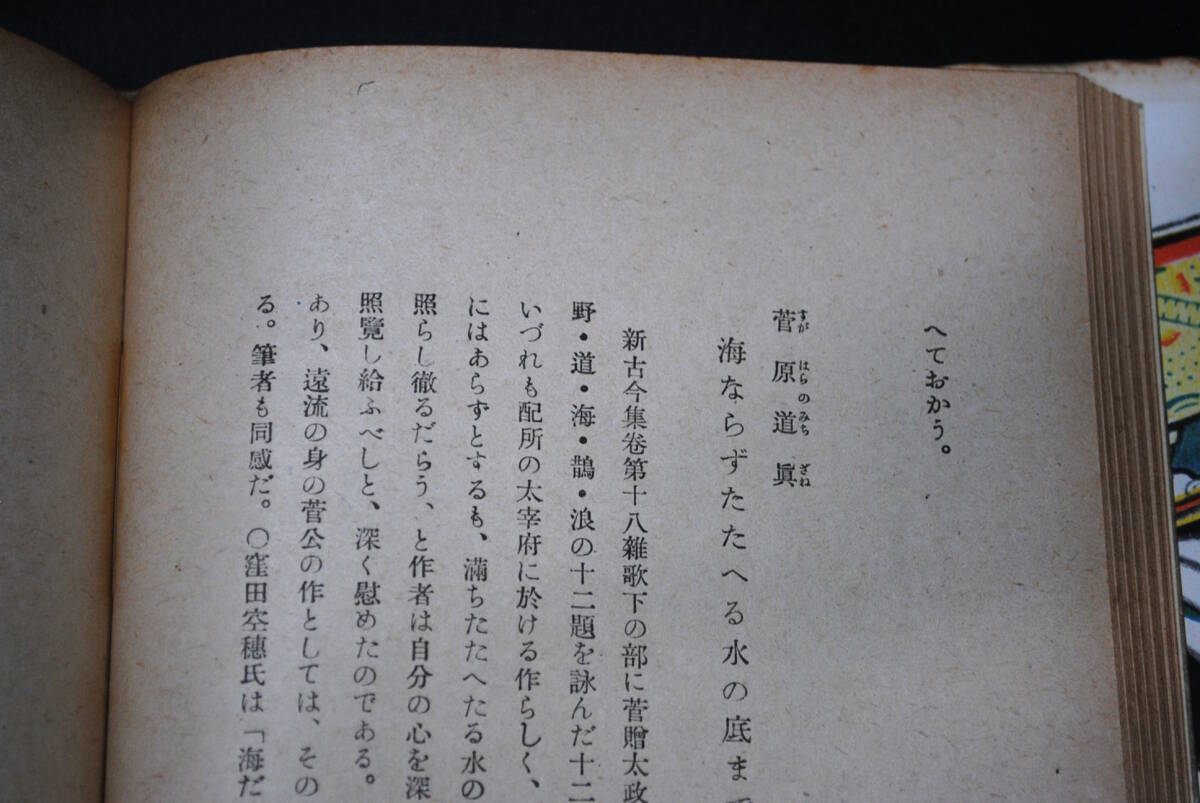 へておかう。
菅原道眞
すがはらのみちざね
海ならずたたへる水の底まで
新古今集卷第十八雜歌下の部に菅贈太政
野・道・海・鵲・浪の十二題を詠んだ十二
いづれも配所の太宰府に於ける作らしく、
にはあらずとするも、滿ちたたへたる水の
照らし徹るだらう、と作者は自分の心を深
照覽し給ふべしと、深く慰めたのである。
あり、遠流の身の菅公の作としては、その
る。筆者も同感だ。〇窪田空穗氏は「海だ